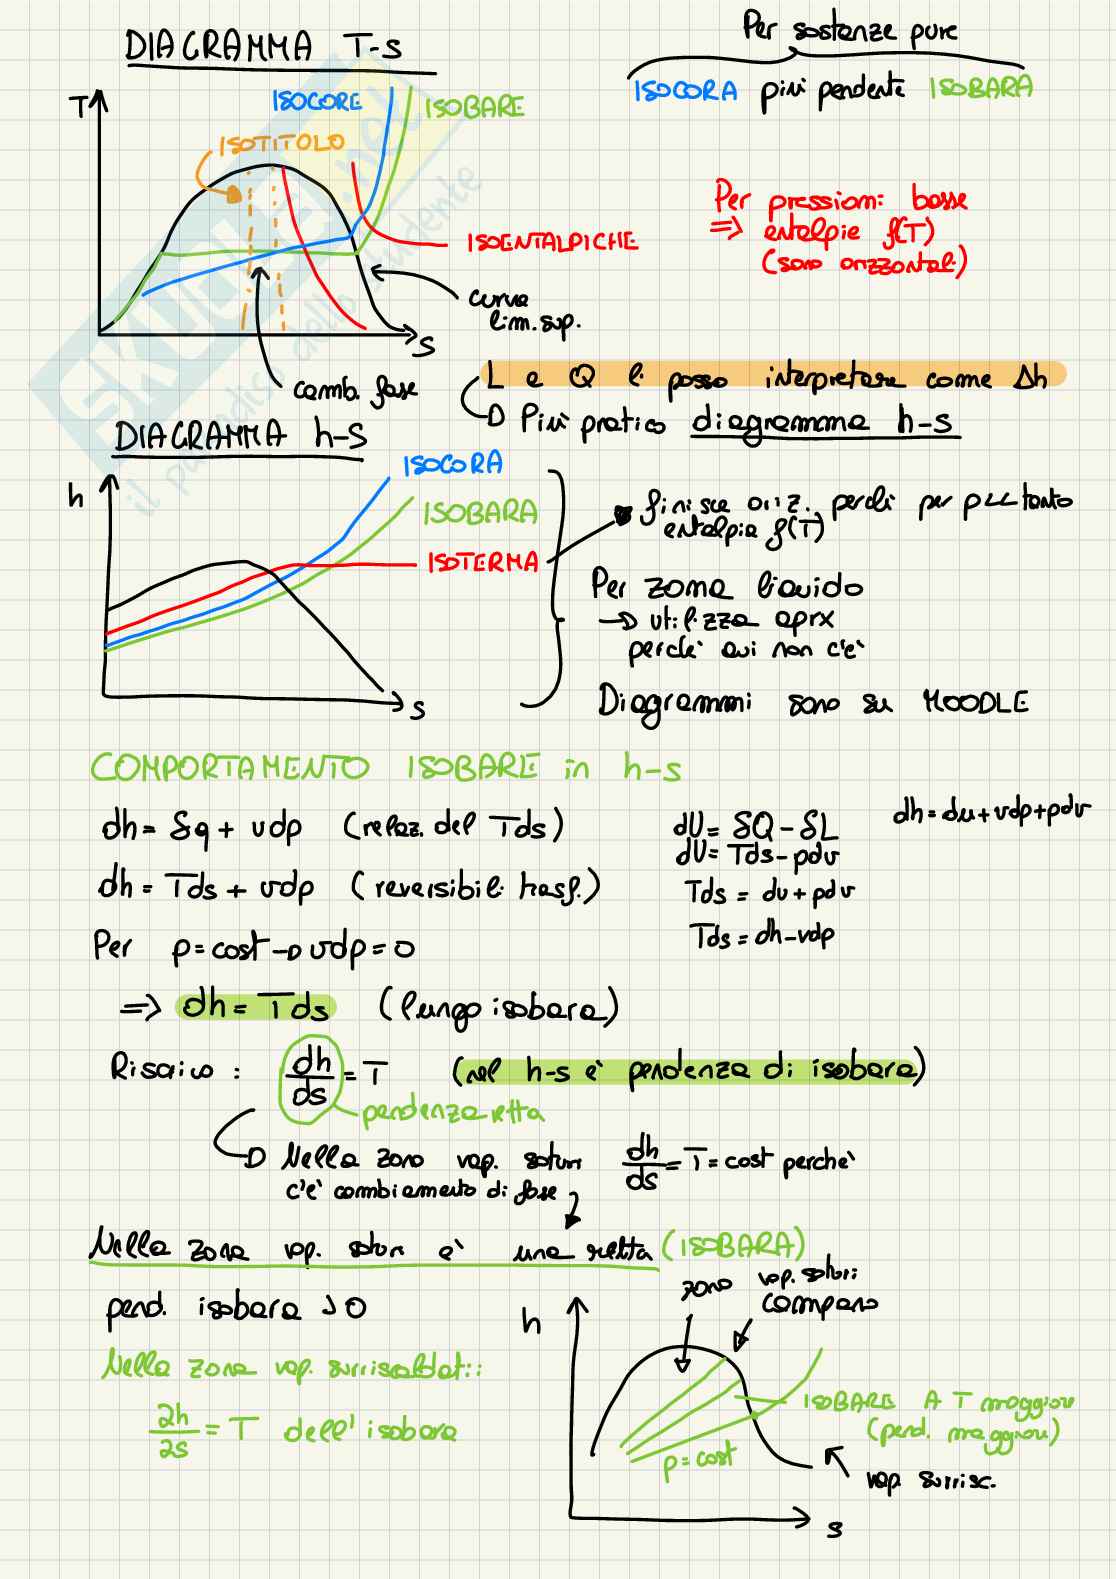 DIAGRAMMA T-s
Per sostanze pure
ISOCORA più pendente ISOBARA
T
ISOCORE
ISOBARE
ISOTITOLO
ISOENTALPICHE
Per pressioni basse
=> entalpie f(T)
(sono orizzontali)
curva
lim.sup.
s
camb. fase
L e Q li posso interpretare come Δh
Più pratico diagramma h-s
DIAGRAMMA h-s
h
ISOCORA
ISOBARA
ISOTERMA
finisce orizz. perchè per p<< tanto
entalpia f(T)
Per zona liquido
→ utilizza aprx
perchè qui non c'è
s
Diagrammi sono su MOODLE
COMPORTAMENTO ISOBARE in h-s
dh = δq + vdp (relaz. del Tds)
dU = δQ - δL
dh = du + vdp + pdv
dU = Tds - pdv
dh = Tds + vdp (reversibili trasf.)
Tds = du + pdv
Tds = dh - vdp
Per p = cost → vdp = 0
=> dh = Tds (lungo isobara)
Riscrivo : dh/ds = T (nel h-s è pendenza di isobara)
pendenza retta
Nella zona vap. saturi dh/ds = T = cost perchè
c'è cambiamento di fase
Nella zona vap. saturi è una retta (ISOBARA)
pend. isobara > 0
zona vap. saturi
compare
h
Nella zona vap. surriscaldati:
∂h/∂s = T dell'isobara
ISOBARE A T maggiore
(pend. maggiore)
p = cost
vap. surrisc.
s
SKUOLA.net
il paradiso dello studente